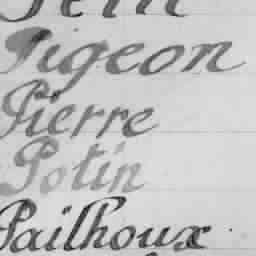 Pigeon
Pierre
Potin
Pailhoux